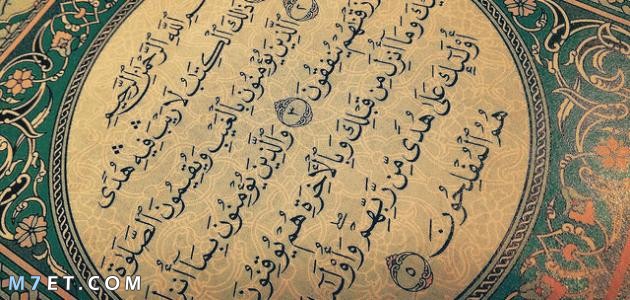 ٱللَّهِ ٱلرَّحْمَٰنِ ٱلرَّحِيمِ
ذَٰلِكَ ٱلْكِتَٰبُ لَا رَيْبَ فِيهِ هُدًى
٢ ٱلَّذِينَ يُؤْمِنُونَ بِٱلْغَيْبِ وَيُقِيمُونَ ٱلصَّلَوٰةَ
رَزَقْنَٰهُمْ يُنفِقُونَ ٣ وَٱلَّذِينَ يُؤْمِنُونَ بِمَآ أُنزِلَ
وَمَآ أُنزِلَ مِن قَبْلِكَ وَبِٱلْءَاخِرَةِ هُمْ يُوقِنُونَ
أُو۟لَٰٓئِكَ عَلَىٰ هُدًى مِّن رَّبِّهِمْ وَأُو۟لَٰٓئِكَ
هُمُ ٱلْمُفْلِحُونَ ٥
M7ET.COM